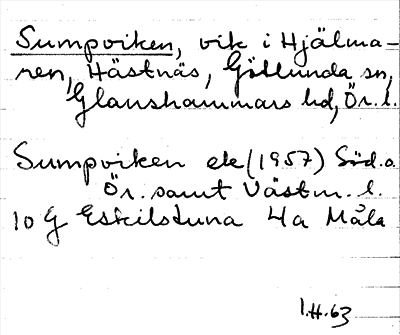 Sumpviken, vik i Hjälma-
ren, Hästnäs, Götlunda sn,
Glanshammars hd, Ör. l.
Sumpviken ek (1957) Söd. o.
Ör. samt Västm. l.
10 G Eskilstuna 4a Måla
I.H. 63